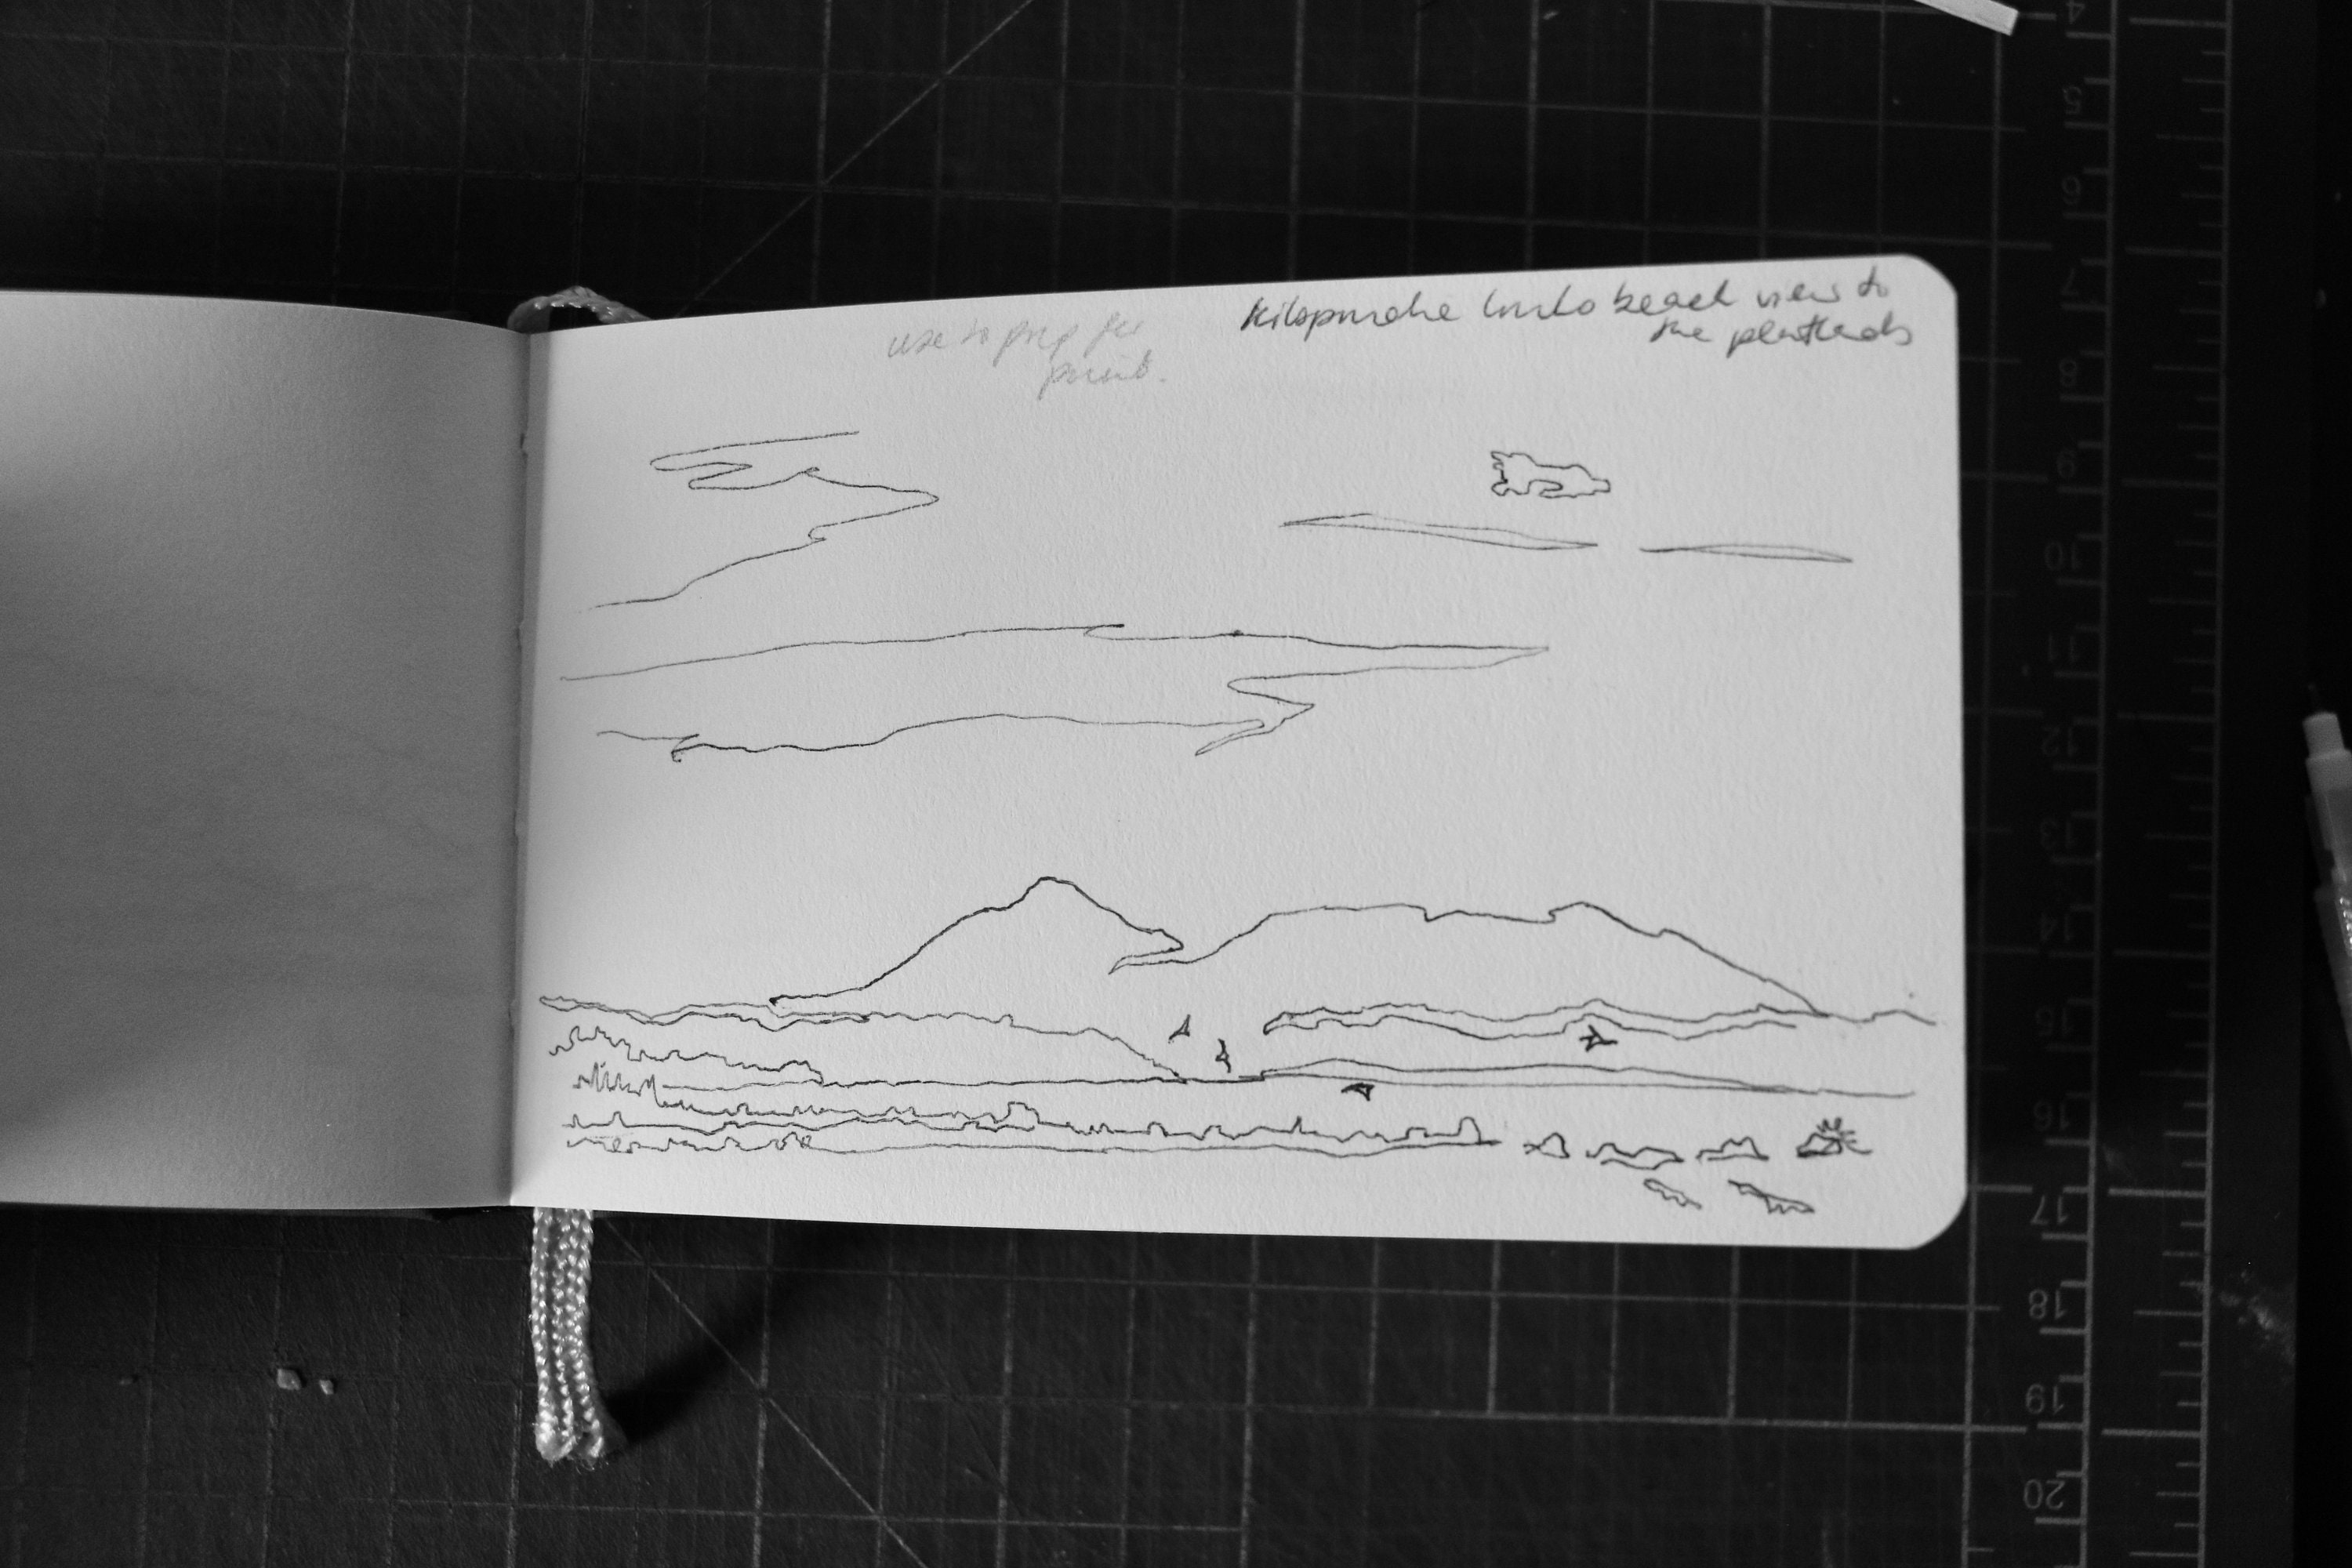 use to prep for
print.
kilspindie links beach view to
the pentlands
4
5
6
7
8
9
10
11
12
13
14
15
16
17
18
19
20